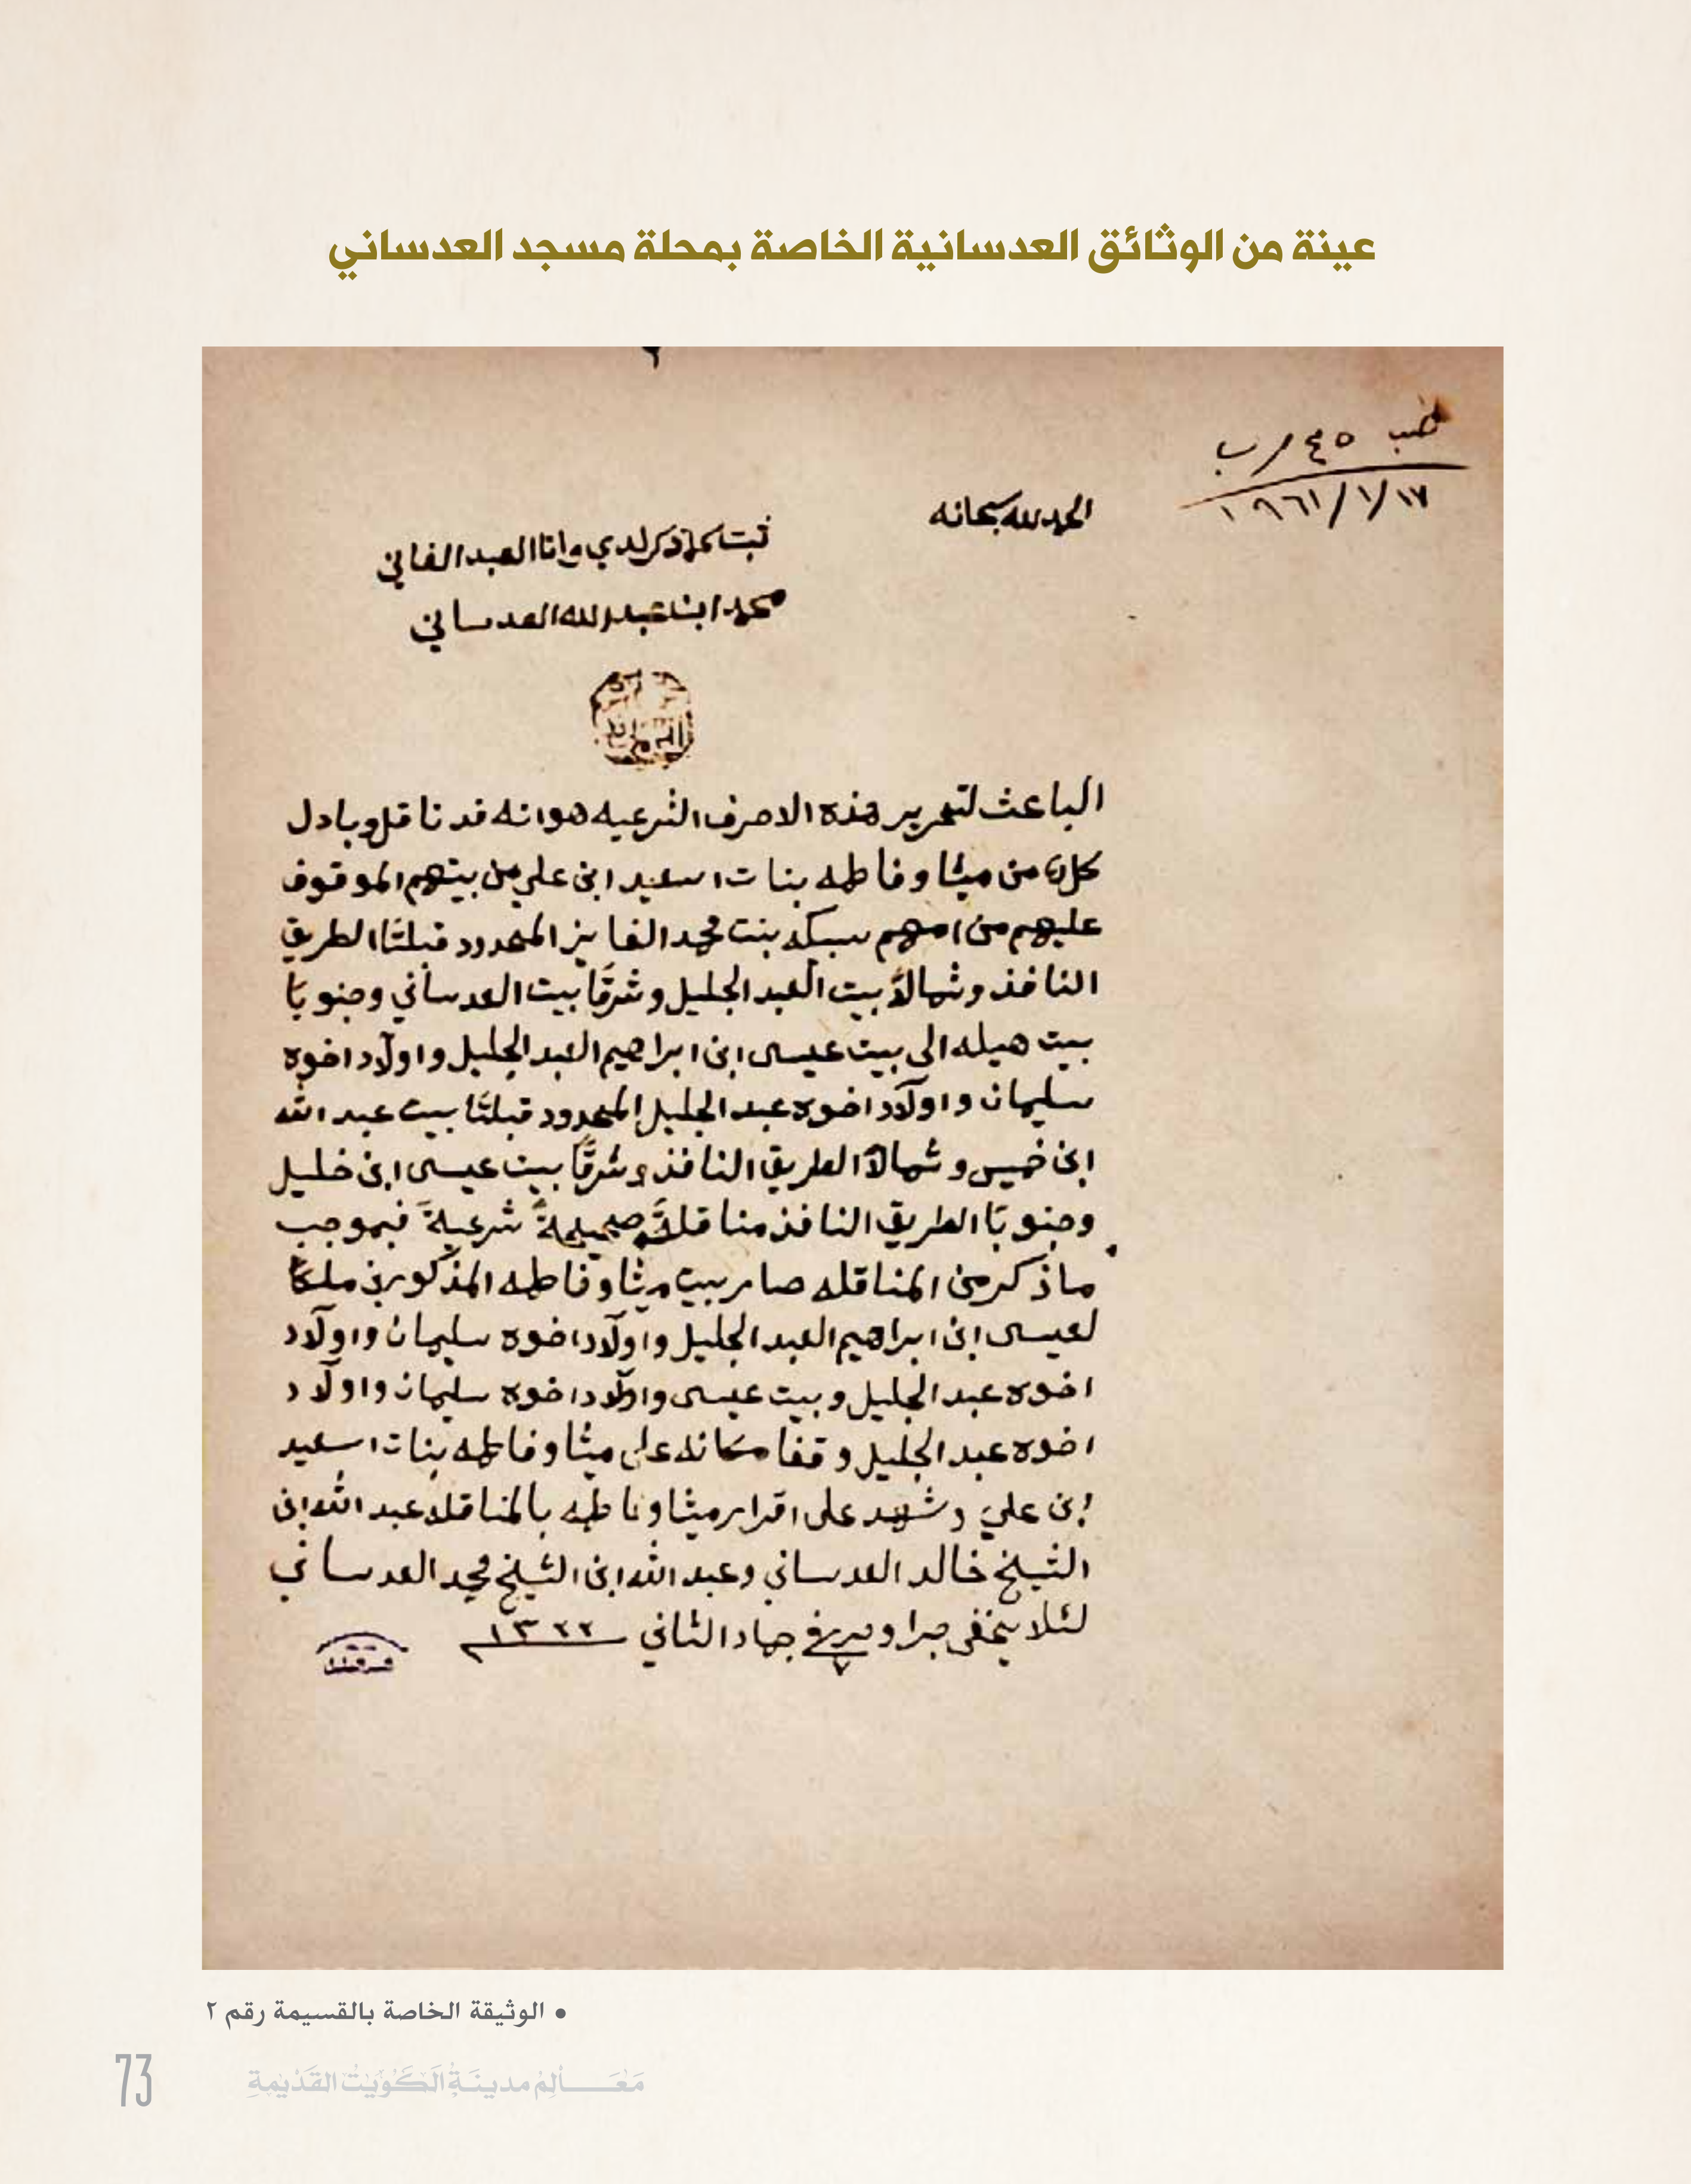 عينة من الوثائق العدسانية الخاصة بمحلة مسجد العدساني
١٩٦١/١/١٧
الحمد لله سبحانه
ثبت كما ذكر لدي وانا العبد الفاني
محمد ابن عبد الله العدساني
الباعث لتحرير هذه الاحرف الشرعيه هو انه قد ناقل وبادل
كلا من ميثا وفاطمه بنات اسعيد ابن علي من بيتهم الموقوف
عليهم من امهم سبيكه بنت محمد الفايز المحدود قبلتًا الطريق
النافذ وشمالاً بيت العبد الجليل وشرقًا بيت العدساني وجنوبًا
بيت هيله الى بيت عيسى ابن ابراهيم العبد الجليل واولاد اخوه
سليمان واولاد اخوه عبد الجليل المحدود قبلتًا بيت عبد الله
ابن خميس وشمالاً الطريق النافذ وشرقًا بيت عيسى ابن خليل
وجنوبًا الطريق النافذ مناقلةً صحيحةً شرعيةً فبموجب
ما ذكر من المناقله صار بيت ميثا وفاطمه المذكورين ملكًا
لعيسى ابن ابراهيم العبد الجليل واولاد اخوه سليمان واولاد
اخوه عبد الجليل وبيت عيسى واولاد اخوه سليمان واولاد
اخوه عبد الجليل وقفا مكانه على ميثا وفاطمه بنات اسعيد
ابن علي وشهد على اقرار ميثا وفاطمه بالمناقله عبد الله ابن
الشيخ خالد العدساني وعبد الله ابن الشيخ محمد العدساني
لئلا يخفى جرا وحرر في ٧ جماد الثاني ١٣٢٢
• الوثيقة الخاصة بالقسيمة رقم ٢
73 مَعَـــالِمُ مدينَةِ الكُوَيْتْ القَدْيمةِ